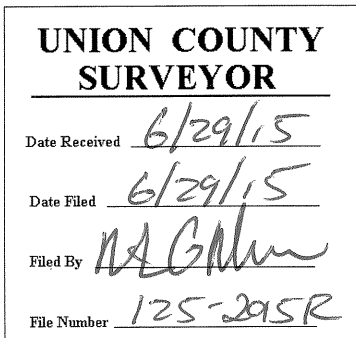 UNION COUNTY
SURVEYOR
Date Received 6/29/15
Date Filed 6/29/15
Filed By
File Number 125-295R